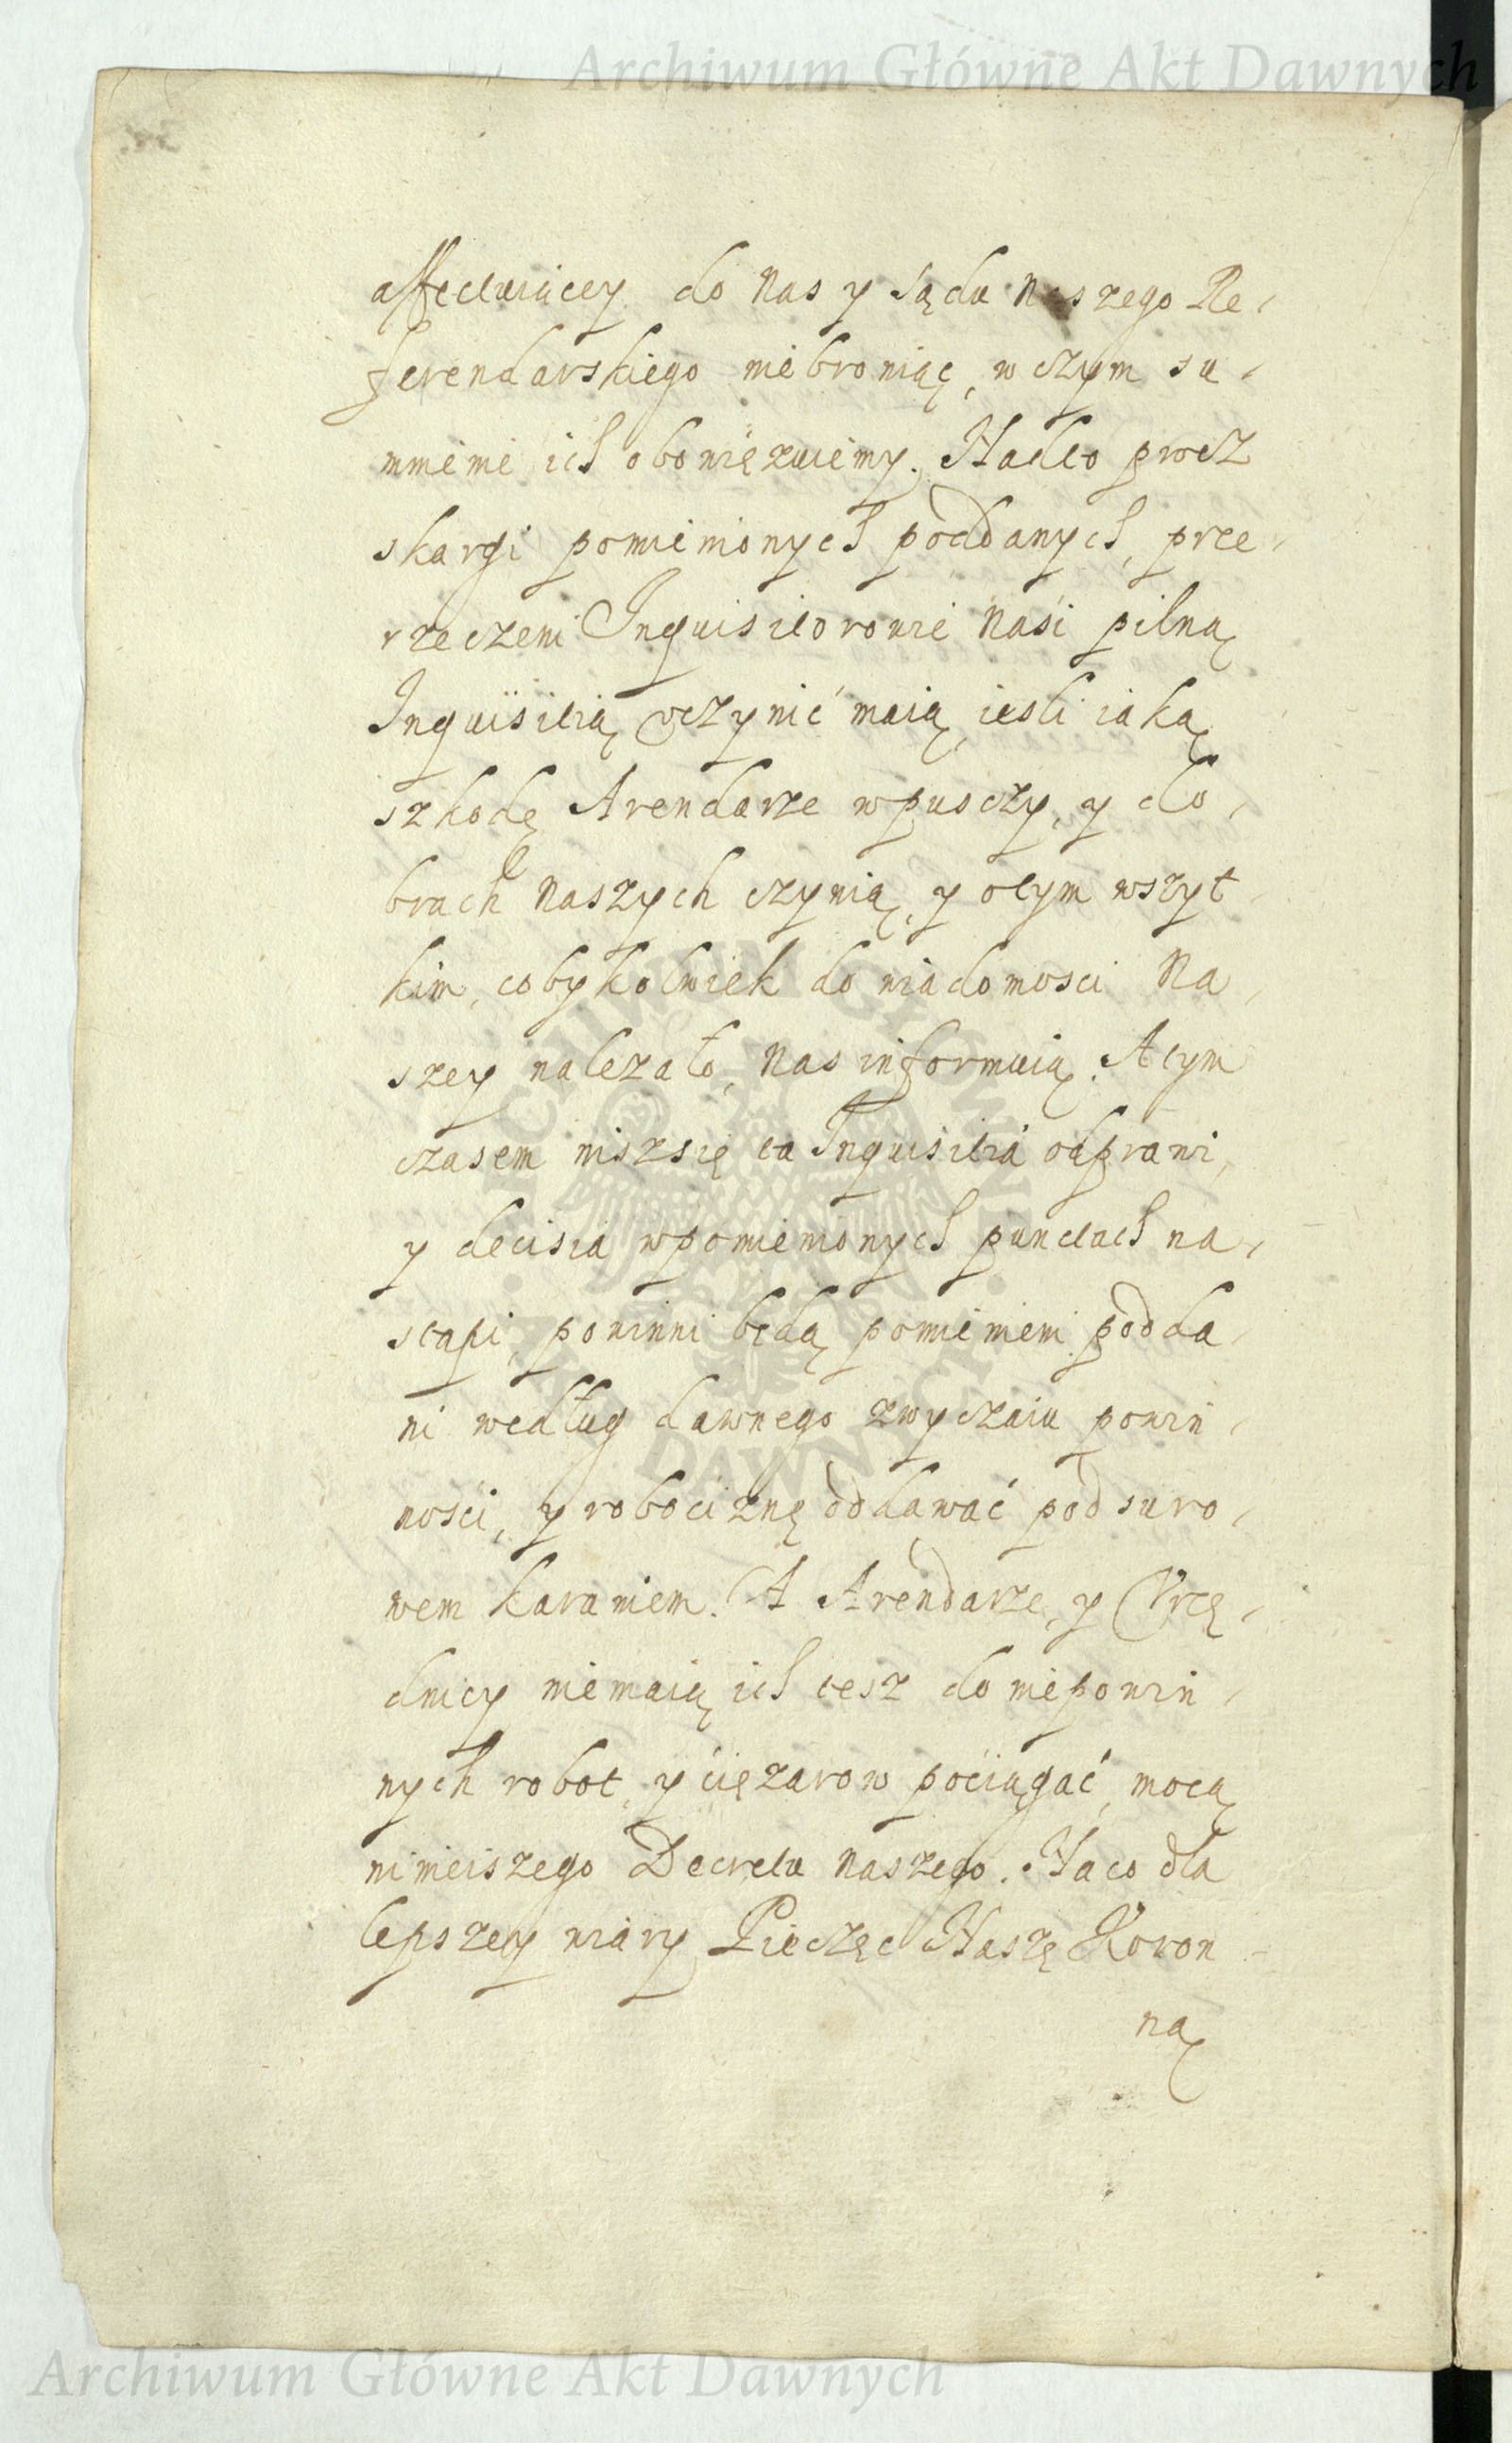 Archiwum Główne Akt Dawnych
affectuiącey do Nas y sądu Naszego Re-
ferendarskiego niebroniąc, w czym su-
mmienie ich obowięzuiemy. Nadto procz
skargi pomienionych poddanych, prze-
rzeczeni Inquisitorowie Nasi pilną
Inquisitią vczynić maią, iesli iaką
szkodę Arendarze wpusczy, y do-
brach Naszych czynią, y otym wszyt-
kim, cobykolwiek do wiadomosci Na-
szey nalezało, Nas informuią. A tym
czasem niszsię ta Inquisitia odprawi,
y decisia wpomienionych punctach na-
stąpi, powinni będą pomienieni podda-
ni według dawnego zwyczaiu powin-
ności, y robociznę oddawać pod suro-
wem karaniem. A Arendarze, y Vrzę-
dnicy niemaią ich tesz do niepowin-
nych robot, y cięzarow pociągać, mocą
ninieiszego Decretu naszego. Na co dla
lepszey wiary Pieczęć Naszę Koron-
ną
Archiwum Główne Akt Dawnych